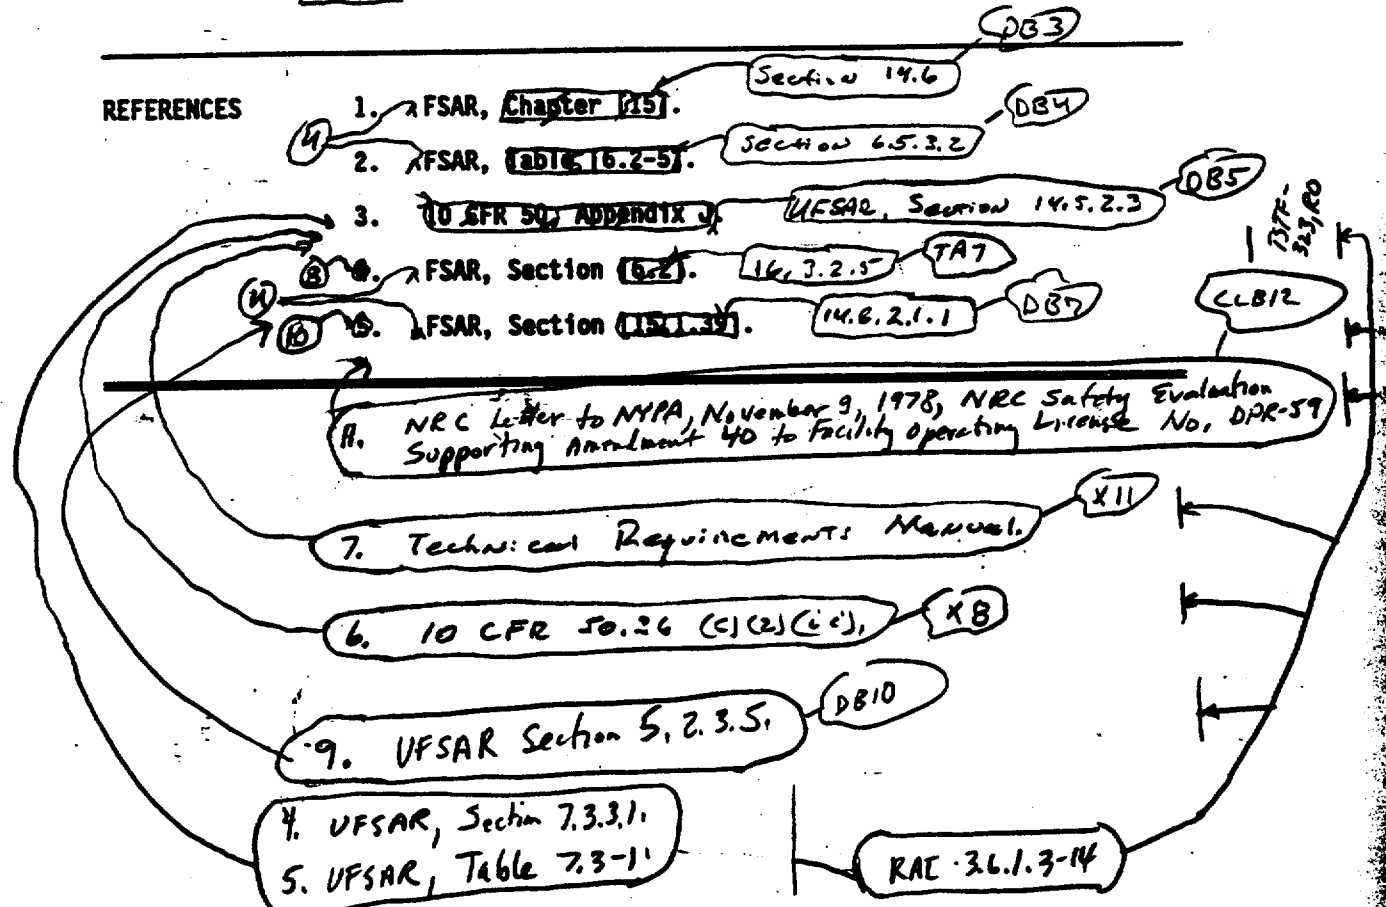 DB3
Section 14.6
REFERENCES 1. FSAR, Chapter [15].
DB4
Section 6.5.3.2
U
2. FSAR, Table [6.2-5].
DB5
3. 10 CFR 50, Appendix J. UFSAR, Section 14.5.2.3
BTF-323, R0
8 4. FSAR, Section [6.2]. 16.3.2.5 TA7
U
CLB12
10 5. FSAR, Section [15.1.39]. DB7
NRC Letter to NYPA, November 9, 1978, NRC Safety Evaluation
11. Supporting Amendment 40 to Facility Operating License No. DPR-59
X11
7. Technical Requirements Manual.
6. 10 CFR X8
DB10
9. UFSAR Section 5.2.3.5.
4. UFSAR, Section 7.3.3.1.
5. UFSAR, Table 7.3-1.
RAI 3.6.1.3-14